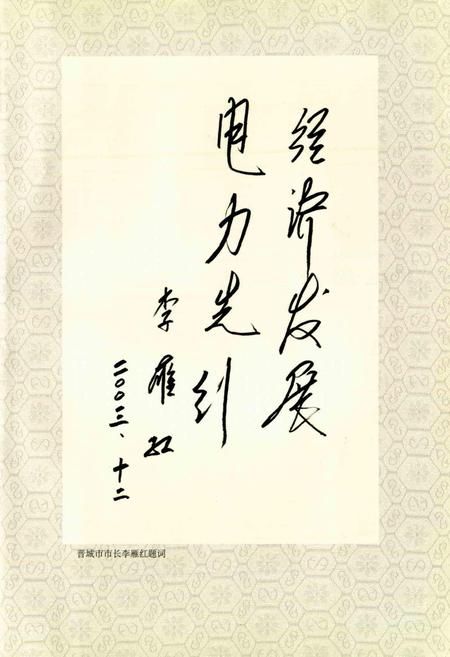 经济发展
电力先行
李雁红
二〇〇三、十二
晋城市市长李雁红题词